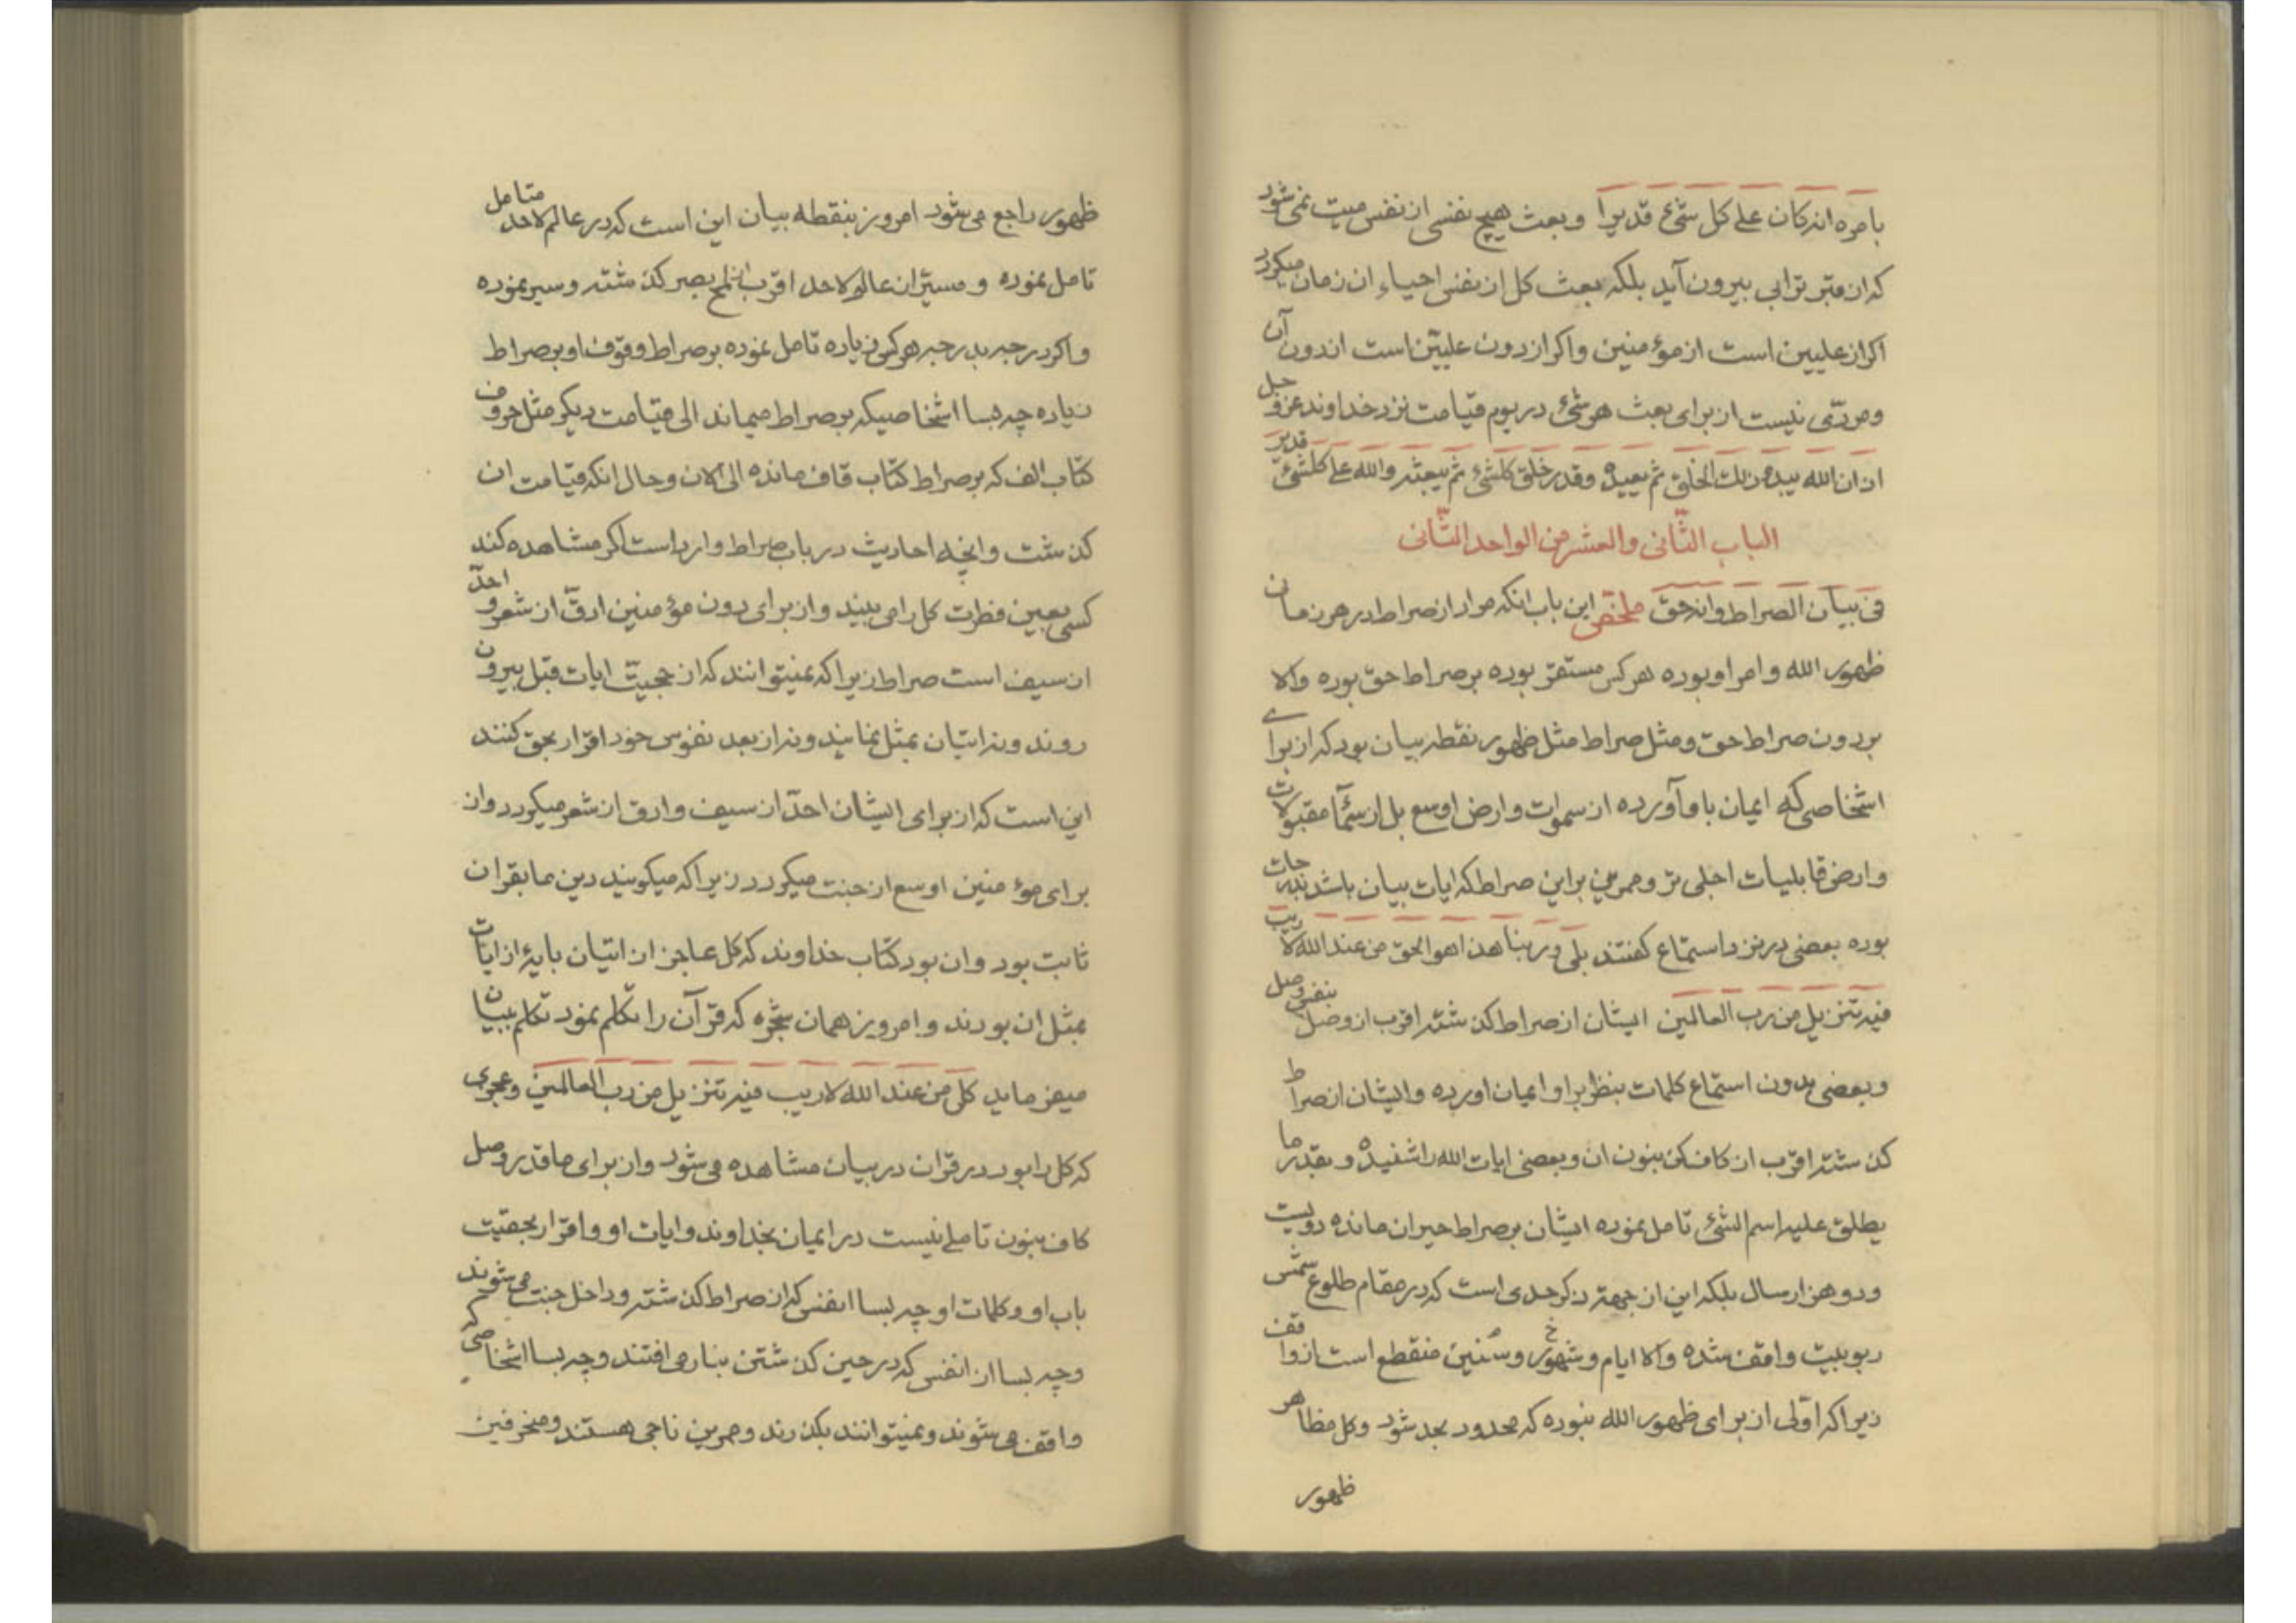 بامره انه کان علی کل شئ قدیرا و بعث هیچ نفسی از نفس میت نمیشود
که از قبر ترابی بیرون آید بلکه بعث کل از نفس احیاء ان زمان میکردد
اکر از علیین است از مؤمنین و اکر از دون علیین است از دون آن
و مردّی نیست از برای بعث هر شئ در یوم قیامت نزد خداوند عز و جل
اذ ان الله یبدء ذلک الخلق ثم یعیده و قدر خلق کلشئ ثم یبعثه و الله علی کلشئ قدیر
الباب الثّانی والعشر من الواحد الثّانی
فی بیان الصراط و انه حق ملخص این باب انکه مراد از صراط در هر زمان
ظهور الله و امر او بوده هر کس مستقر بوده بر صراط حق بوده والا
بر دون صراط حق و مثل صراط مثل ظهور نقطه بیان بود که از برای
اشخاصی که ایمان باو آورده از سموات و ارض اوسع بل از سمآء مقبولات
و ارض قابلیات اجلی تر و هر مؤمن براین صراط که ایات بیان باشد بدرجات
بوده بعضی در نزد استماع کفتند بلی و ربنا هذا هو الحق من عند الله لا ریب
فیه تنزیل من رب العالمین ایشان از صراط کذشته اقرب از وصل بنفس وصل
و بعضی بدون استماع کلمات بنظر براو ایمان اورده و ایشان از صراط
کذشته اقرب از کاف کن بنون ان و بعضی ایات الله را شنیده و بقدر ما
یطلق علیه اسم الشئ تامل نموده ایشان بر صراط حیران مانده دویست
و دو هزار سال بلکه این از جهته ذکر حدی است که در مقام طلوع شمس
ربوبیت واقف شده والا ایام و شهور و سنین منقطع است از واقف
زیرا که اوّلی از برای ظهور الله نبوده که محدود بحد شود و کل مظاهر
ظهور
ظهور راجع میشود امروز بنقطه بیان این است که در عالم لاحد متامل
تامل نموده و مسیر ان عالم لاحد اقرب از لمح بصر کذشته و سیر نموده
و اکر درجه بدرجه هر کس زیاده تامل نموده بر صراط وقوف او بر صراط
زیاده چه بسا اشخاصیکه بر صراط میماند الی قیامت دیکر مثل حروف
کتاب الف که بر صراط کتاب قاف مانده الی الان و حال انکه قیامت ان
کذشت و انچه احادیث در باب صراط وارد است اکر مشاهده کند
کسی بعین فطرت کل را می بیند و از برای دون مؤمنین ادقّ از شعر و احدّ
از سیف است صراط زیرا که نمیتوانند که از حجیّت ایات قبل بیرون
روند و نه اتیان بمثل نمایند و نه از بعد نفوس خود اقرار بحق کنند
این است که از برای ایشان احدّ از سیف و ادق از شعر میکردد و از
برای مؤمنین اوسع از جنت میکردد زیرا که میکویند دین ما بقران
ثابت بود و ان بود کتاب خداوند که کل عاجز از اتیان بایهٔ از ایات
بمثل ان بودند و امروز همان شجره که قرآن را تکلم نمود تکلم ببیان
میفرماید کل من عند الله لا ریب فیه تنزیل من رب العالمین و عجزی
که کل را بود در قران در بیان مشاهده میشود و از برای ما قدر وصل
کاف بنون تاملی نیست در ایمان بخداوند و ایات او و اقرار بحقیت
باب او و کلمات او چه بسا انفسی که از صراط کذشته و داخل جنت میشوند
و چه بسا از انفسی که در حین کذشتن بنار می افتند و چه بسا اشخاصی که
واقف میشوند و نمیتوانند بکذرند و مؤمنین ناجی هستند و منحرفین